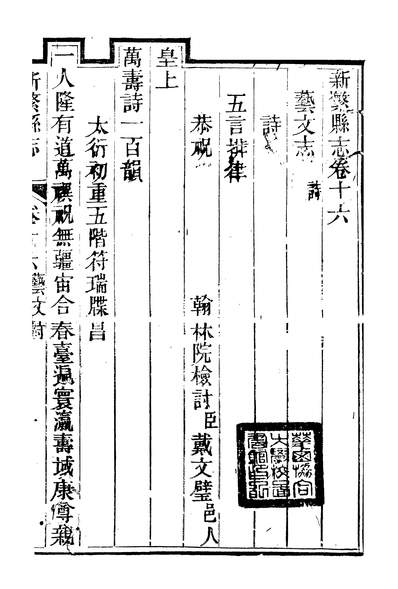 新繁縣志卷十六
藝文志 詩
詩
五言排律
恭祝 翰林院檢討臣戴文璧邑人
皇上
萬壽詩一百韻
太衍初重五階符瑞牒昌
一人隆有道萬禩祝無疆宙合春臺遍寰瀛壽域康傳栽
新繁縣志 卷十六藝文 詩